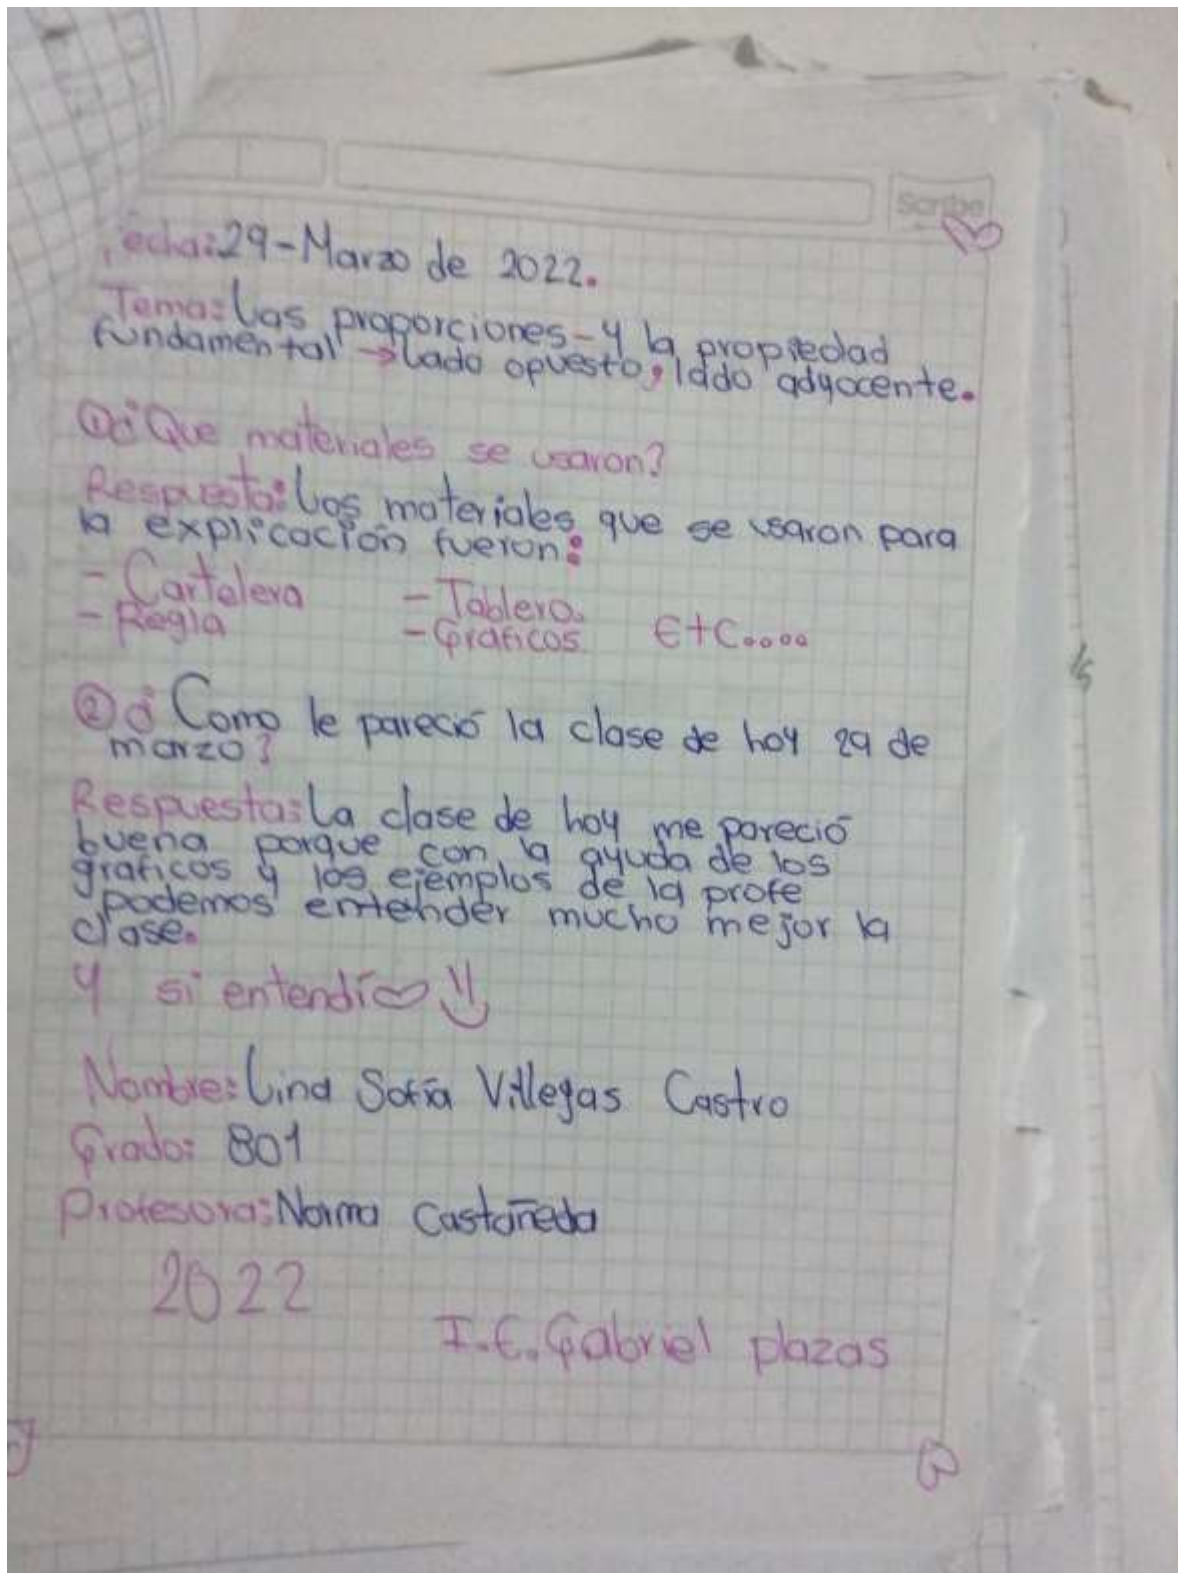 Scribe
Fecha: 29-Marzo de 2022.
Tema: Las proporciones - y la propiedad
fundamental → Lado opuesto, lado adyacente.
① ¿Que materiales se usaron?
Respuesta: Los materiales que se usaron para
la explicación fueron:
- Cartelera - Tablero.
- Regla - Gráficos. Etc....
② ¿Como le pareció la clase de hoy 29 de
marzo?
Respuesta: La clase de hoy me pareció
buena porque con la ayuda de los
graficos y los ejemplos de la profe
podemos entender mucho mejor la
clase.
y si entendí
Nombre: Lina Sofía Villegas Castro
Grado: 801
Profesora: Norma Castañeda
2022
I.E. Gabriel plazas